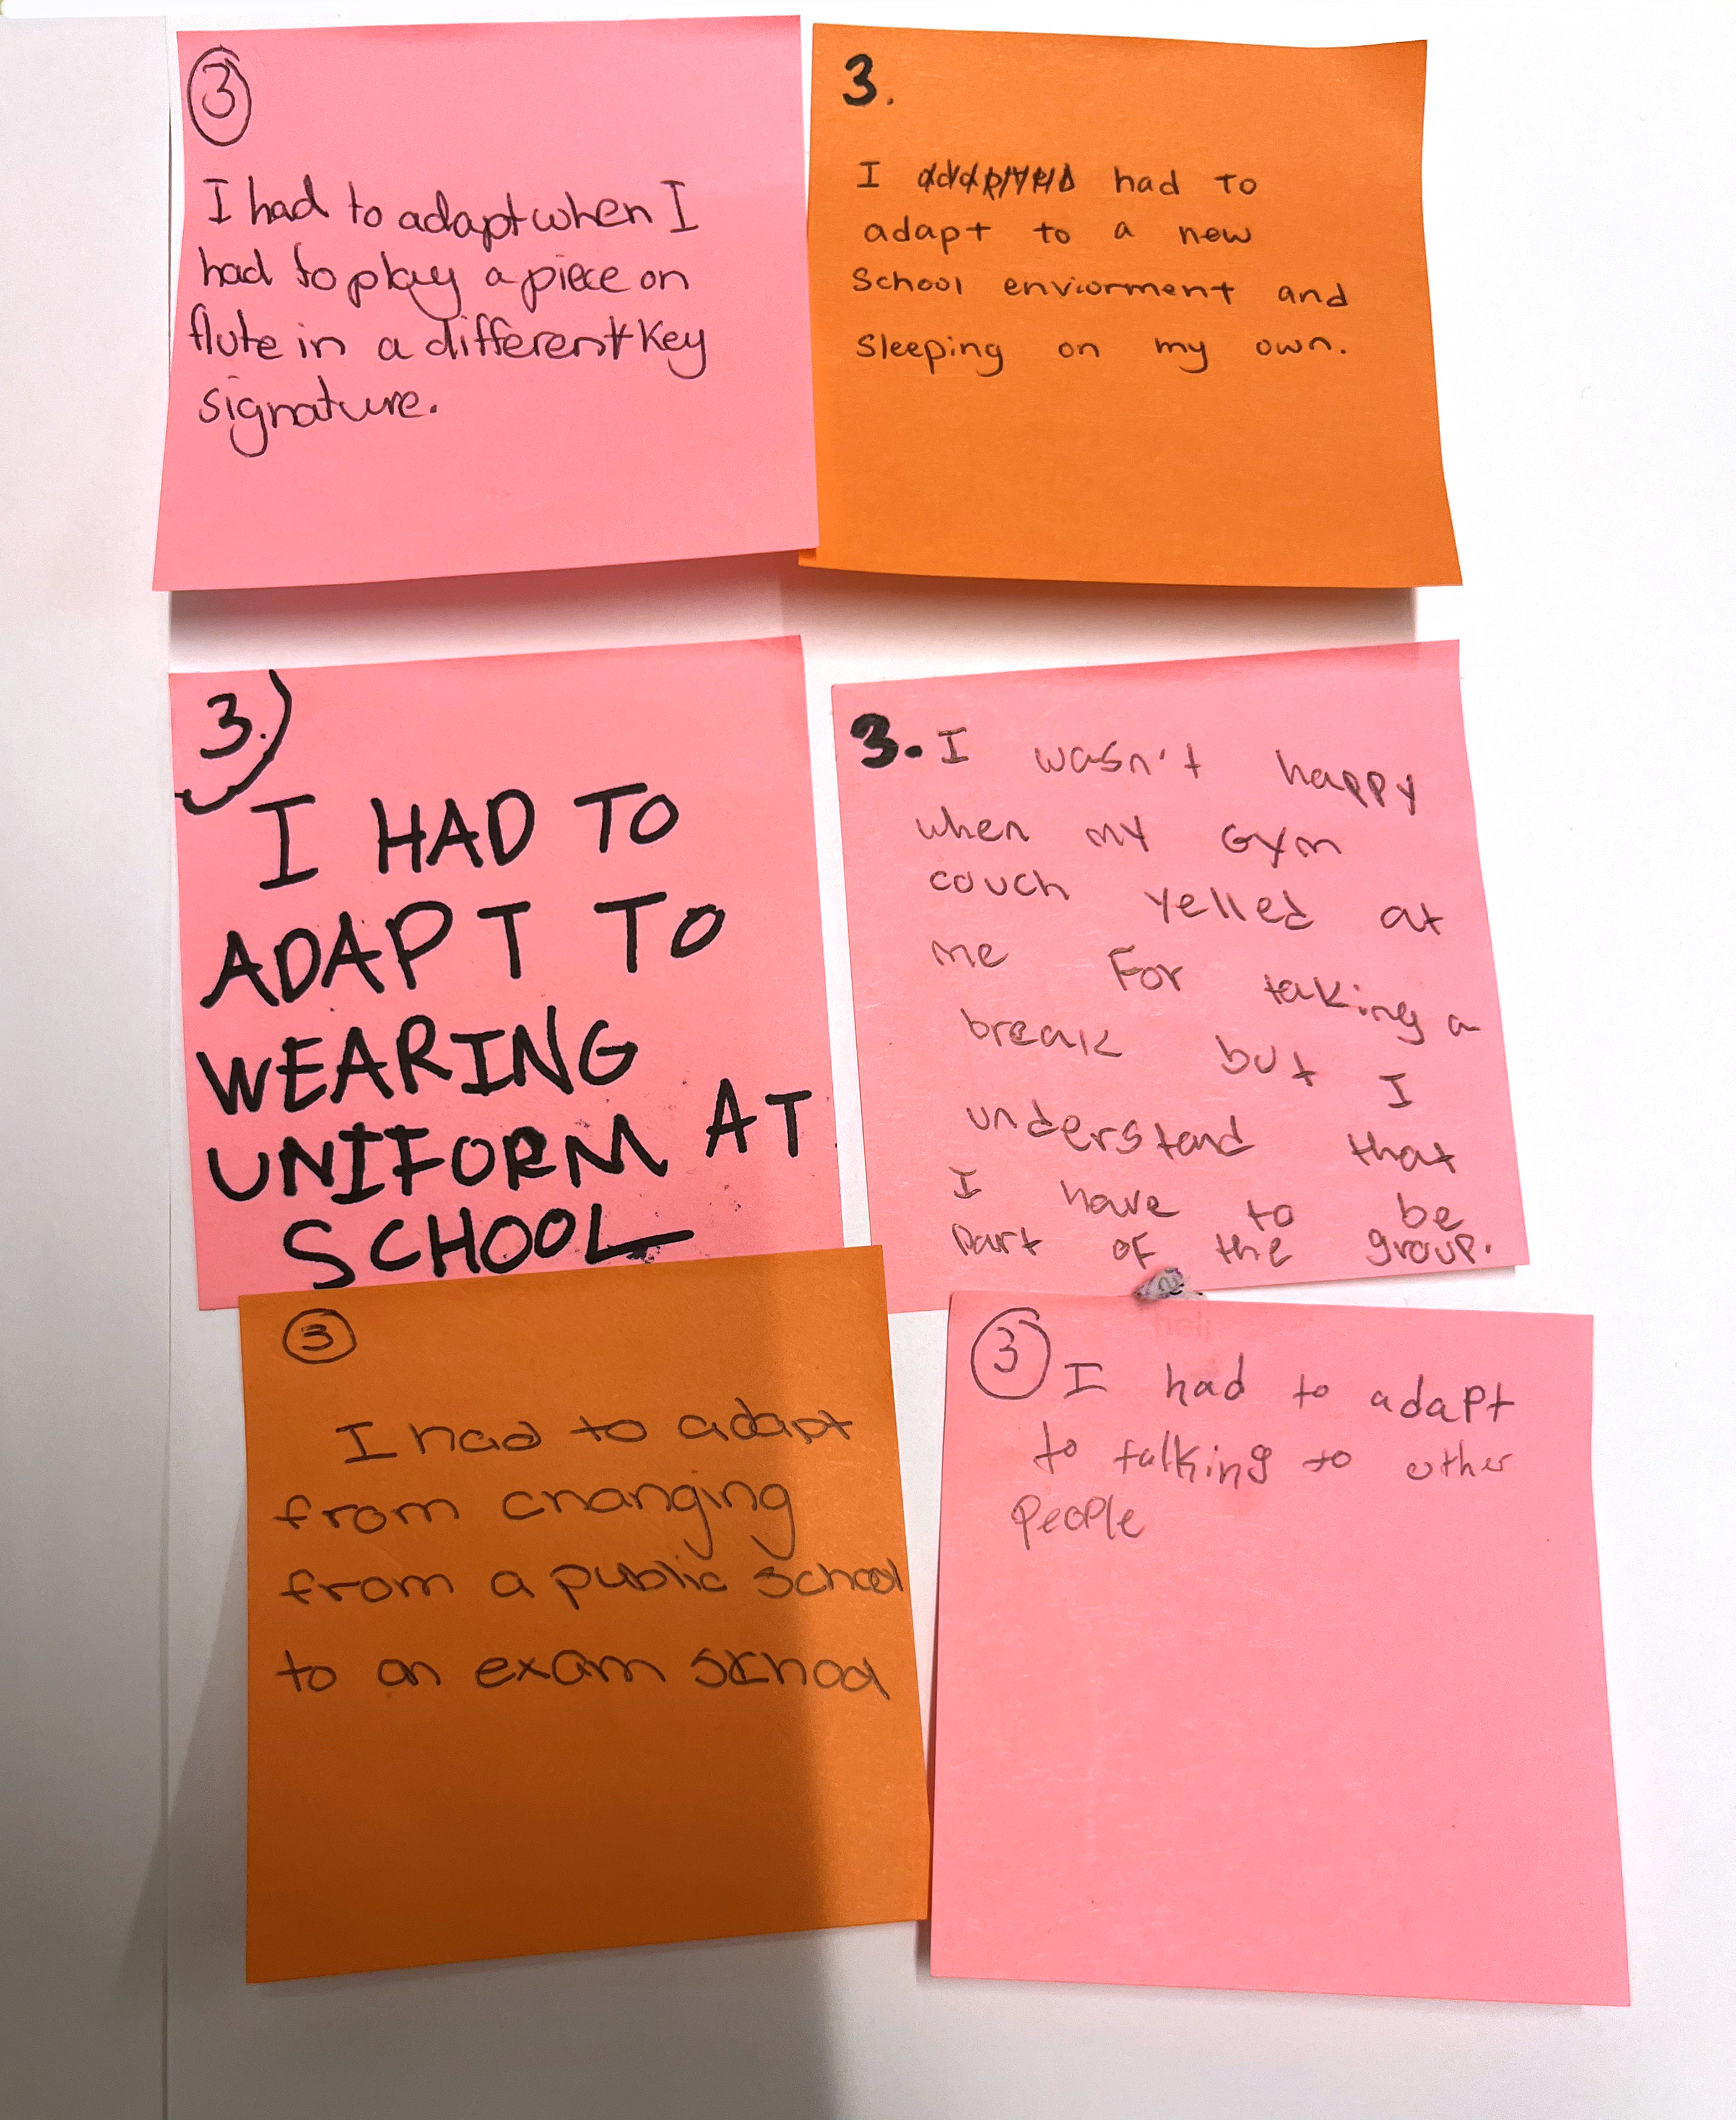 3
I had to adapt when I
had to play a piece on
flute in a different key
signature.
3.
I had to
adapt to a new
School enviorment and
Sleeping on my own.
3.)
I HAD TO
ADAPT TO
WEARING
UNIFORM AT
SCHOOL
3. I wasn't happy
when my Gym
couch yelled at
me For taking a
break but I
understand that
I have to be
part of the group.
3
I had to adapt
from changing
from a public school
to an exam school
3 I had to adapt
to talking to other
People